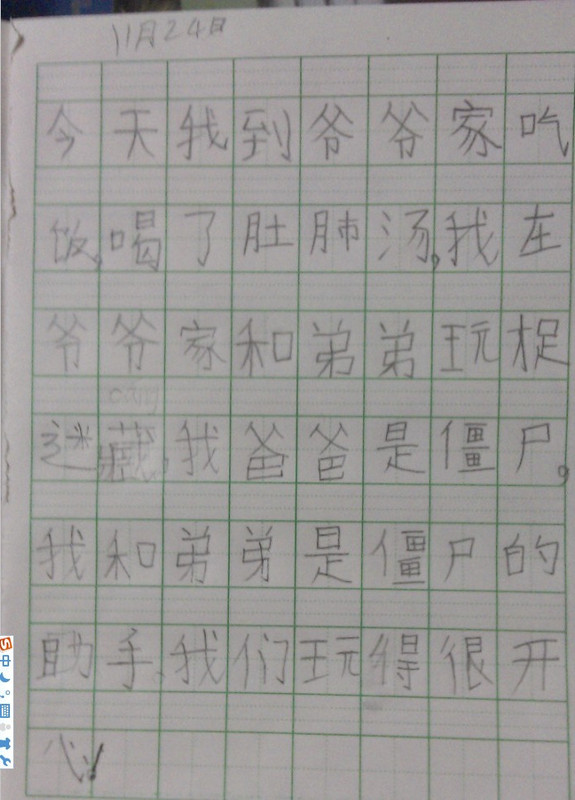 11月24日
今天我到爷爷家吃
饭,喝了肚肺汤,我在
爷爷家和弟弟玩捉
cáng
迷藏,我爸爸是僵尸,
我和弟弟是僵尸的
助手,我们玩得很开
心!
中